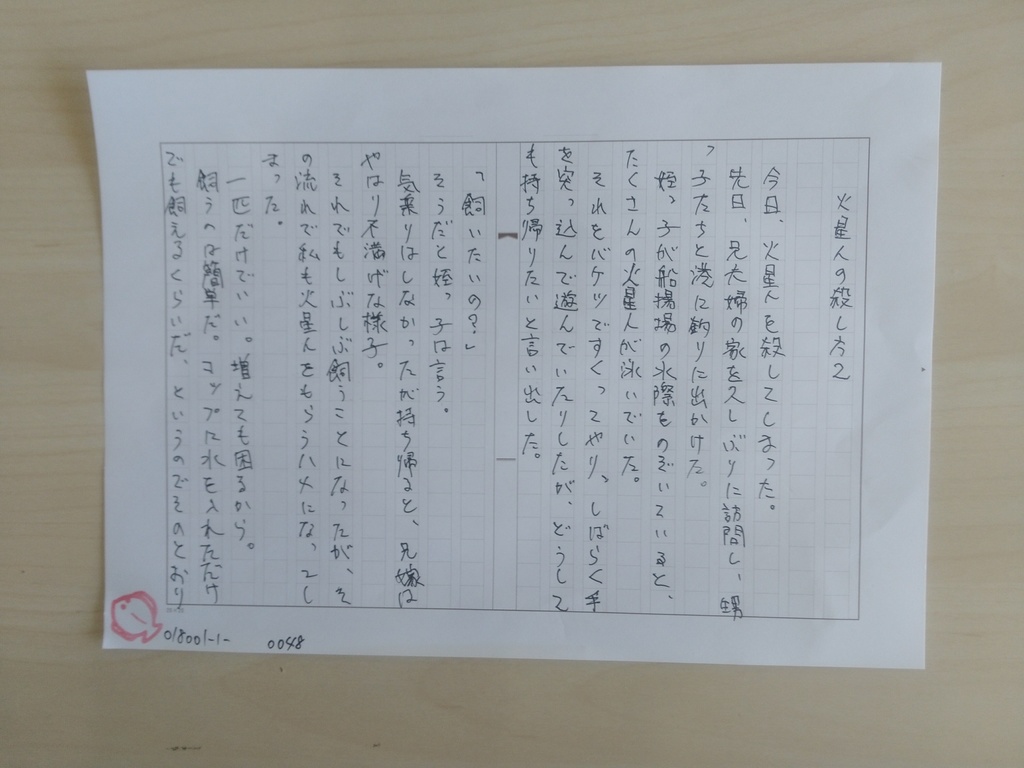 火星人の殺し方2
今日、火星人を殺してしまった。
先日、兄夫婦の家を久しぶりに訪問し、甥
っ子たちと港に釣りに出かけた。
姪っ子が船揚場の水際をのぞいていると、
たくさんの火星人が泳いでいた。
それをバケツですくってやり、しばらく手
を突っ込んで遊んでいたりしたが、どうして
も持ち帰りたいと言い出した。
「飼いたいの?」
そうだと姪っ子は言う。
気乗りはしなかったが持ち帰ると、兄嫁は
やはり不満げな様子。
それでもしぶしぶ飼うことになったが、そ
の流れで私も火星人をもらうハメになってし
まった。
一匹だけでいい。増えても困るから。
飼うのは簡単だ。コップに水を入れただけ
でも飼えるくらいだ、というのでそのとおり
018001-1-
0048